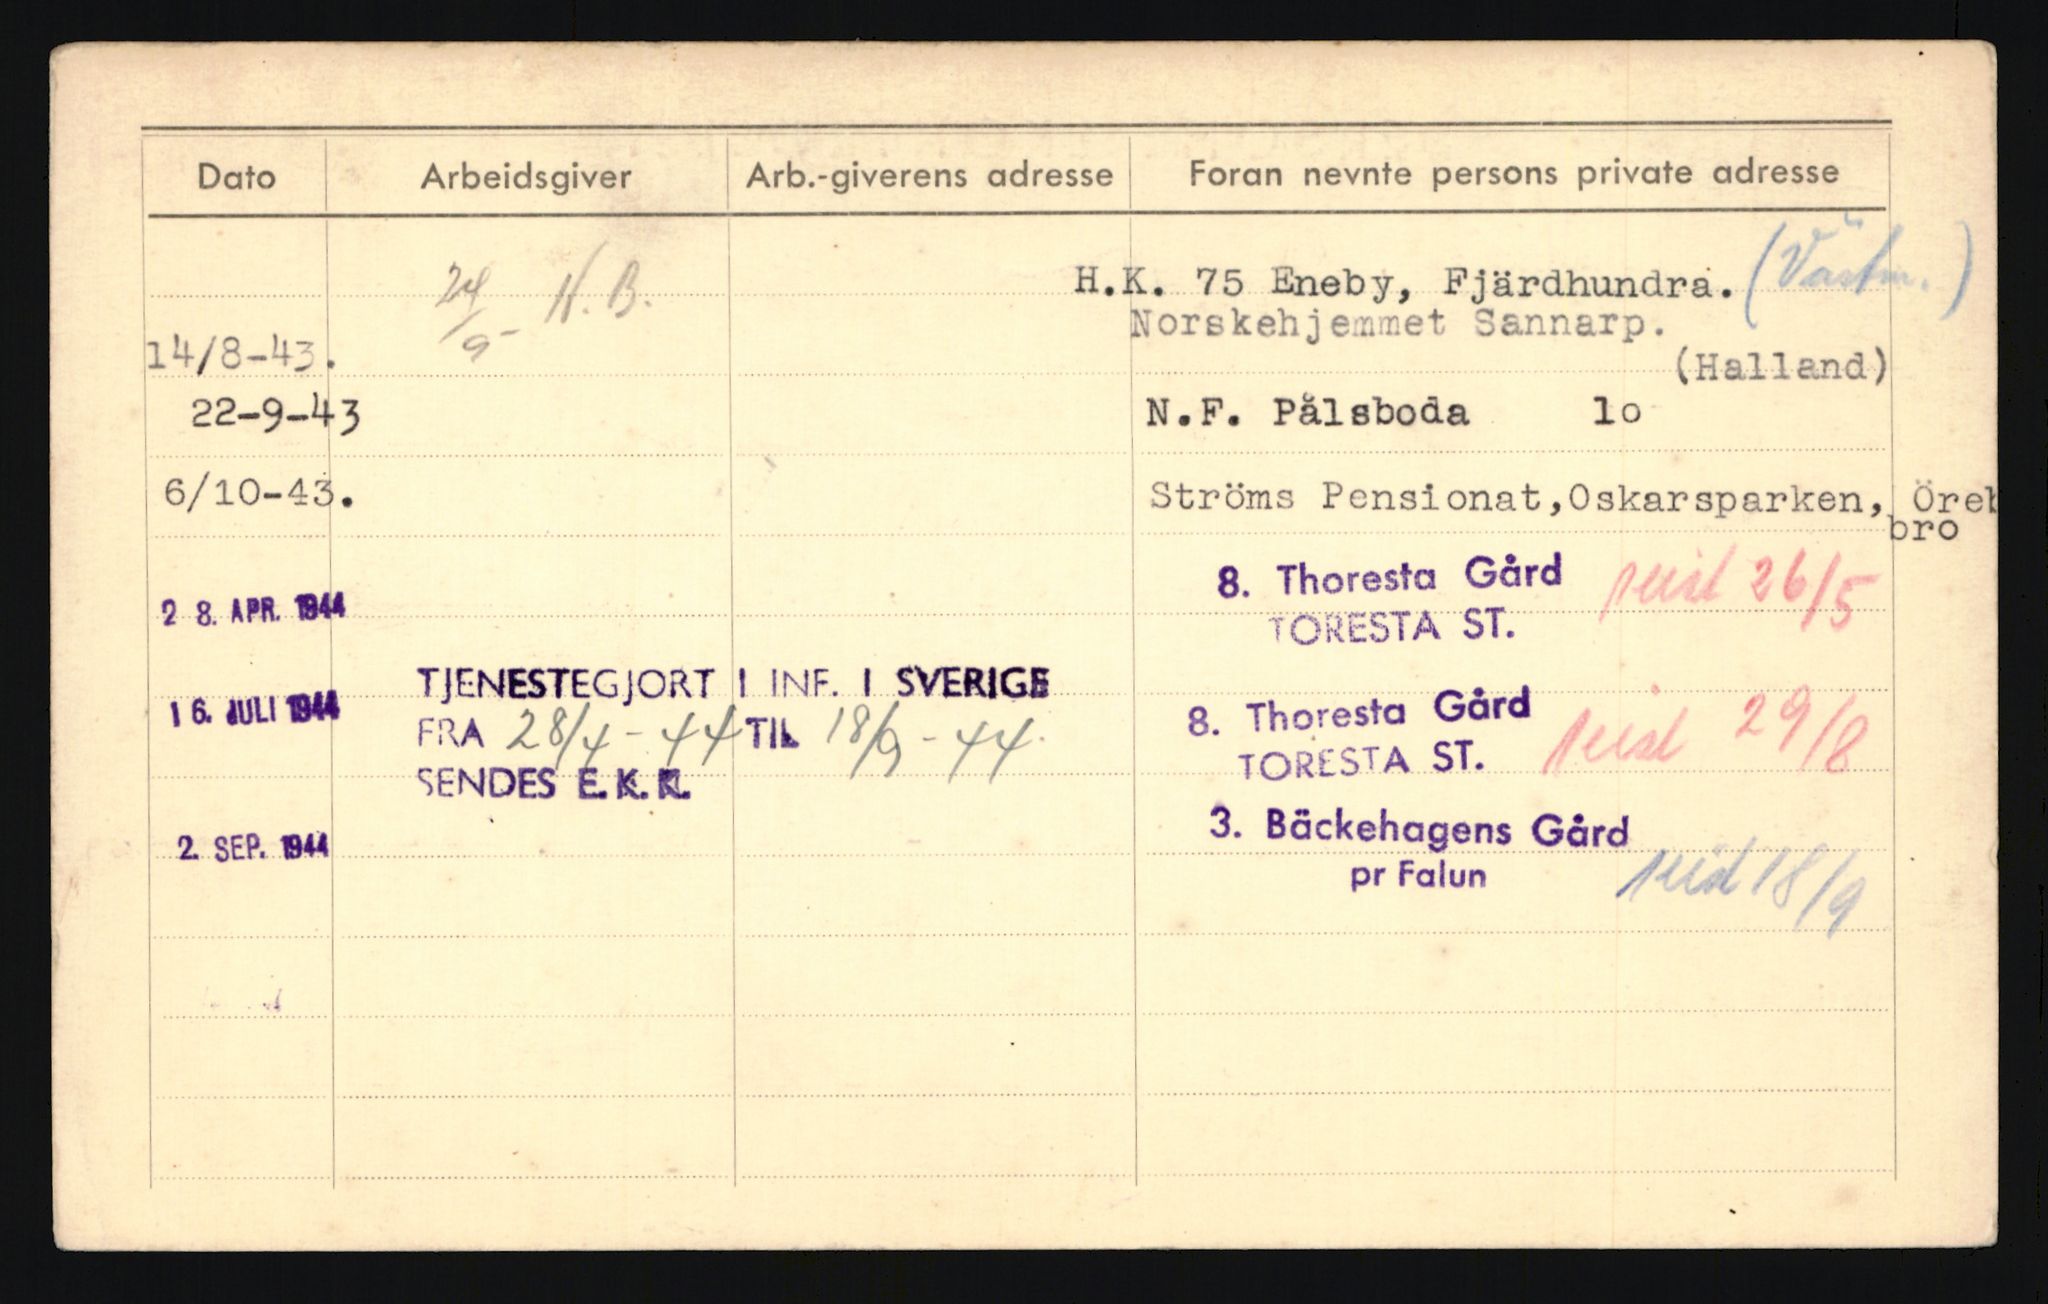 Dato Arbeidsgiver Arb.-giverens adresse Foran nevnte persons private adresse
24/9- N.B.
H.K. 75 Eneby, Fjärdhundra. (Västm.)
Norskehjemmet Sannarp.
14/8-43.
(Halland)
22-9-43 N.F. Pålsboda 10
6/10-43. Ströms Pensionat,Oskarsparken, Öreb
bro
28. APR. 1944 8. Thoresta Gård
TORESTA ST. reist 26/5
16. JULI 1944 TJENESTEGJORT I INF. I SVERIGE
FRA 28/4-44 TIL 18/9-44
SENDES E.K.K.
8. Thoresta Gård
TORESTA ST. reist 29/8
2. SEP. 1944 3. Bäckehagens Gård
pr Falun reist 18/9